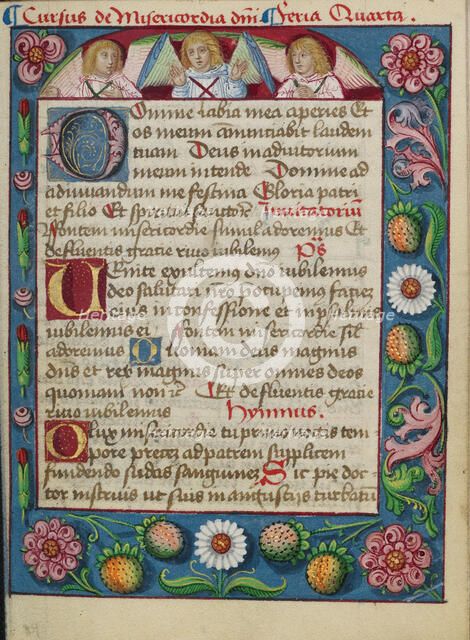 Cursus de Misericordia dni Feria Quarta.
Domine labia mea aperies Et
os meum annuntiabit laudem
tuam Deus in adiutorium
meum intende Domine ad
adiuuandum me festina Gloria patri
et filio Et spiritui Inuitatorium
Fontem misericordie simul adoremus Et
defluentis gratie riuo iubilemus Ps
Uenite exultemus dno iubilemus
deo salutari nro preocupemus faciez
eius in confessione et in psalmis
iubilemus ei Fontem misericordie sil
adoremus Quoniam deus magnus
dns et rex magnus super omnes deos
quoniam non rc Et defluentis gratie
riuo iubilemus Hymnus.
O lux misericordie tu primo noctis tem
pore preces ad patrem supplicem
fundendo sudas sanguinez Sic pie doc
tor instruis ut suis in angustijs turbatu